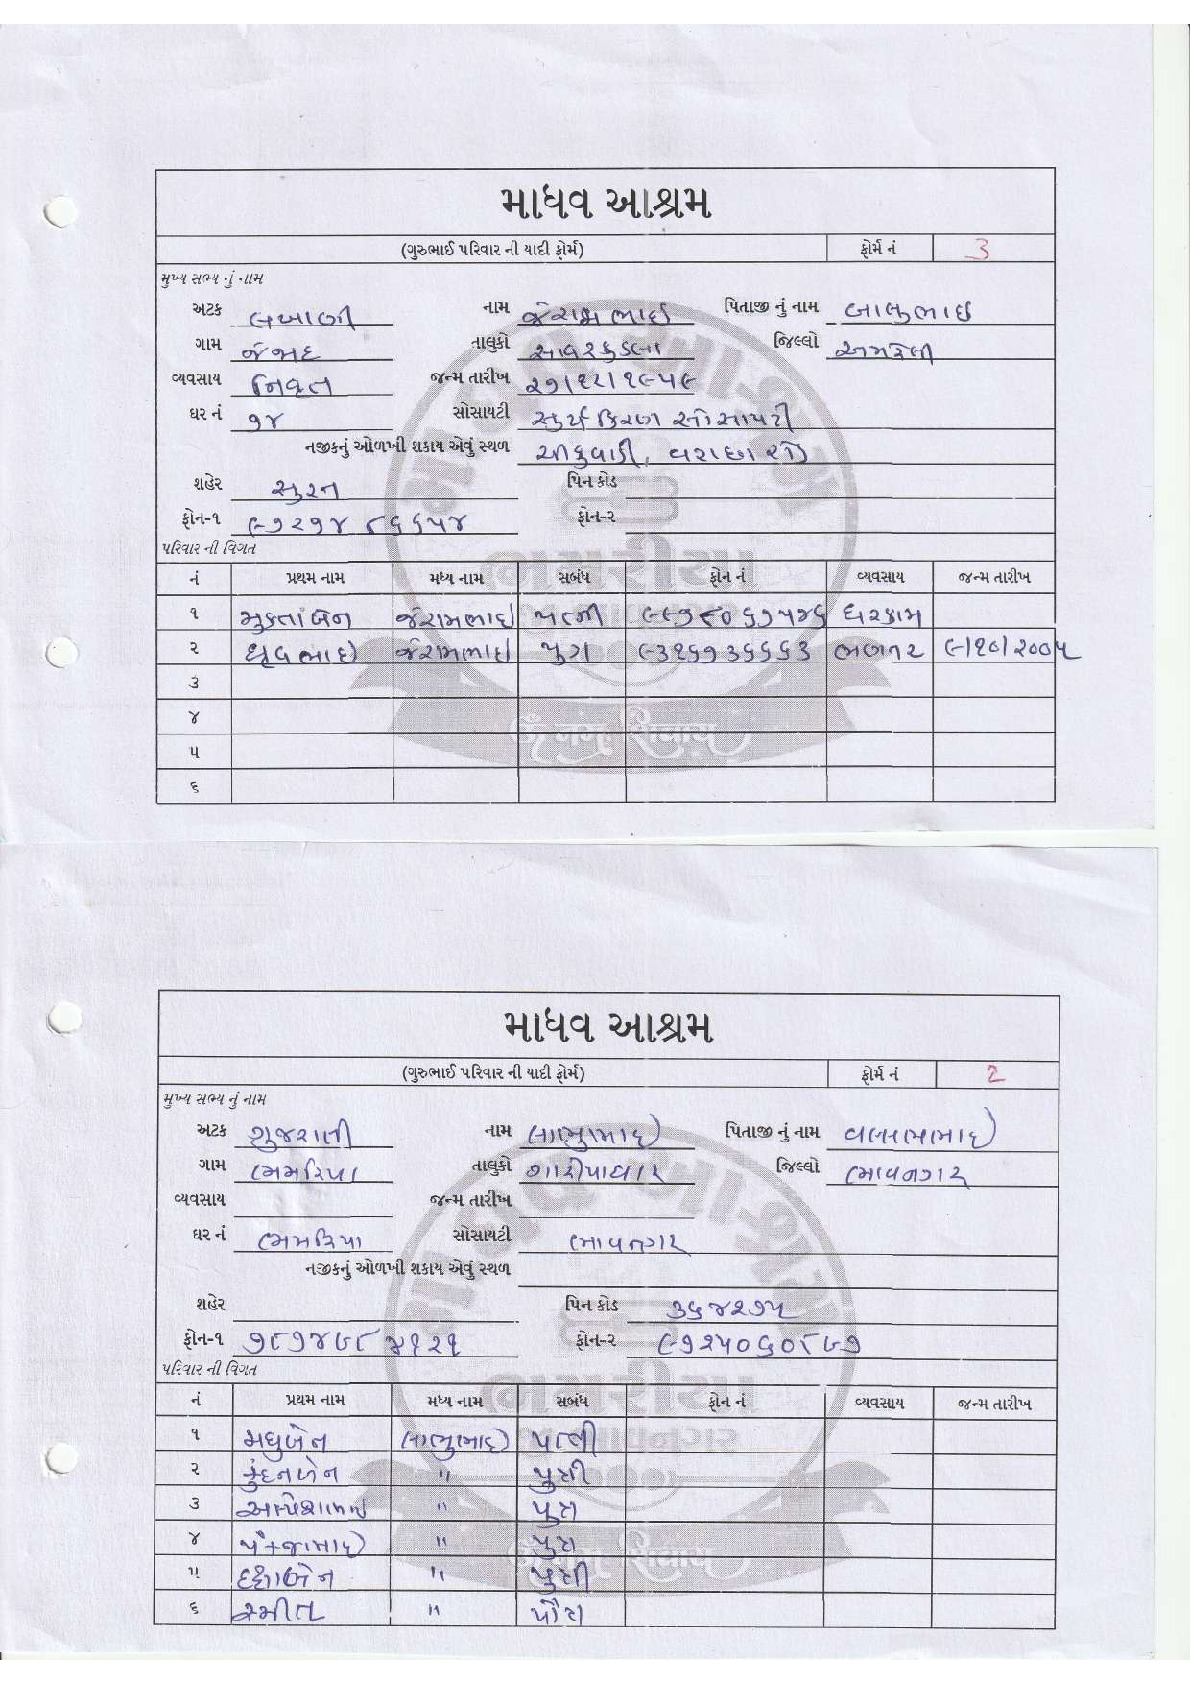 માધવ આશ્રમ
(ગુરુભાઈ પરિવાર ની યાદી ફોર્મ) ફોર્મ નં 3
મુખ્ય સભ્ય નું નામ
અટક લખાણી નામ જેરામભાઈ પિતાજી નું નામ બાલુભાઈ
ગામ જેજાદ તાલુકો સાવરકુંડલા જિલ્લો અમરેલી
વ્યવસાય નિવૃત જન્મ તારીખ ૨૭/૧૨/૧૯૫૯
ઘર નં ૭૪ સોસાયટી સુર્ય કિરણ સોસાયટી
નજીકનું ઓળખી શકાય એવું સ્થળ ચીકુવાડી, વરાછા રોડ
શહેર સુરત પિન કોડ
ફોન-૧ ૯૭૨૭૪૮૬૬૫૪ ફોન-૨
પરિવાર ની વિગત
નં પ્રથમ નામ મધ્ય નામ સબંધ ફોન નં વ્યવસાય જન્મ તારીખ
૧ મુક્તાબેન જેરામભાઈ પત્ની ૯૯૭૮૦૬૭૫૪૬ ઘરકામ
૨ ધ્રુવભાઈ જેરામભાઈ પુત્ર ૯૩૧૬૭૩૬૬૬૩ ભણતર ૯/૧૦/૨૦૦૫
૩
૪
૫
૬
ૐ નમઃ શિવાય
માધવ આશ્રમ
(ગુરુભાઈ પરિવાર ની યાદી ફોર્મ) ફોર્મ નં 2
મુખ્ય સભ્ય નું નામ
અટક ગુજરાતી નામ લાભુભાઈ પિતાજી નું નામ વલ્લભભાઈ
ગામ ભમરિયા તાલુકો ગારીયાધાર જિલ્લો ભાવનગર
વ્યવસાય જન્મ તારીખ
ઘર નં ભમરિયા સોસાયટી ભાવનગર
નજીકનું ઓળખી શકાય એવું સ્થળ
શહેર પિન કોડ ૩૬૪૨૭૫
ફોન-૧ ૭૮૭૪૭૮૪૧૨૧ ફોન-૨ ૯૭૨૫૦૬૦૮૭૭
પરિવાર ની વિગત
નં પ્રથમ નામ મધ્ય નામ સબંધ ફોન નં વ્યવસાય જન્મ તારીખ
૧ મધુબેન લાભુભાઈ પત્ની
૨ કુંદનબેન " પુત્રી
૩ " પુત્ર
૪ પંકજભાઈ " પુત્ર
૫ દક્ષાબેન " પુત્રી
૬ સ્મીત " પૌત્ર
ૐ નમઃ શિવાય